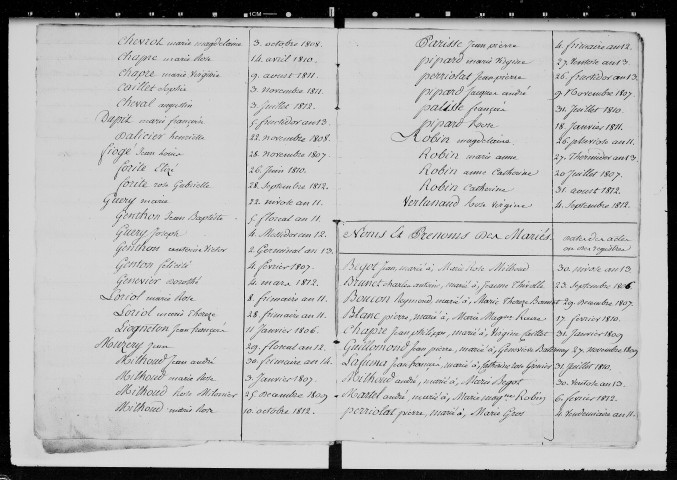 Chevrol marie magdelaine 3. octobre 1808.
Chapre marie Rose 14. avril 1810.
Chapre marie Virginie 9. aoust 1811.
Caillet Sophie 3. novembre 1811.
Cheval augustin 3. Juillet 1812.
Dupit marie françoise 5. fructidor an 13.
Dalicier henriette 22. novembre 1808.
Fiogé Jean Louis 28. novembre 1807.
forite 26. Juin 1810.
forite rose Gabrielle 28. Septembre 1812.
Guery marie 22. nivose an 11.
Gonthon Jean Baptiste 5. floreal an 11.
Guery Joseph 4. Messidor an 12.
Gonthon Victor 2. Germinal an 13.
Genton felicité 4. fevrier 1807.
Genevier 4. mars 1812.
Loriol marie Rose 8. frimaire an 11.
Loriol marie Thereze 28. frimaire an 11.
Liogneton Jean françois 11. Janvier 1806.
Mouzery Jean 29. floreal an 12.
Mithoud Jean andré 30. frimaire an 14.
Mithoud marie Rose 3. Janvier 1807.
Mithoud Rose 25. Decembre 1809
Mithoud marie Rose 10. octobre 1812.
Parisse Jean pierre 4. frimaire an 12.
pipard marie Virginie 27. Ventose an 13.
perriolat Jean pierre 26. fructidor an 13.
pipard Jacques andré 9. Novembre 1807.
palisse françois 31. Juillet 1810.
pipard Rose 18. Janvier 1811.
Robin magdelaine 26. pluviose an 11.
Robin marie anne 27. Thermidor an 13.
Robin anne Catherine 20. Juillet 1807.
Robin Catherine 31. aoust 1812.
Vertunaud Rose Virgine 4. Septembre 1812.
Noms Et Prenoms des Mariés. dates des actes ou des registres
Bigot Jean, marié à, Marie Rose Mithoud 30. nivose an 13
Brunet charles antoine, marié à, 23. Septembre 1806
Boucon Raymond marié à, Marie Thereze 29. decembre 1807.
Blanc pierre, marié à, Marie Magne 17. fevrier 1810.
Chapre Jean philippe, marié à, Virginie Caillet 31. Janvier 1809
Gaillomond Jean pierre, marié à, Genevieve 27. novembre 1809
Lafuma Jean françois, marié à, Catherine rose 31. Juillet 1810.
Mithoud andré, marié à, Marie Begot 30. Ventose an 13.
Martel andré, marié à, Marie magne Robin 6. fevrier 1812.
perriolat pierre, marié à, Marie Gros 4. Vendemiaire an 11.